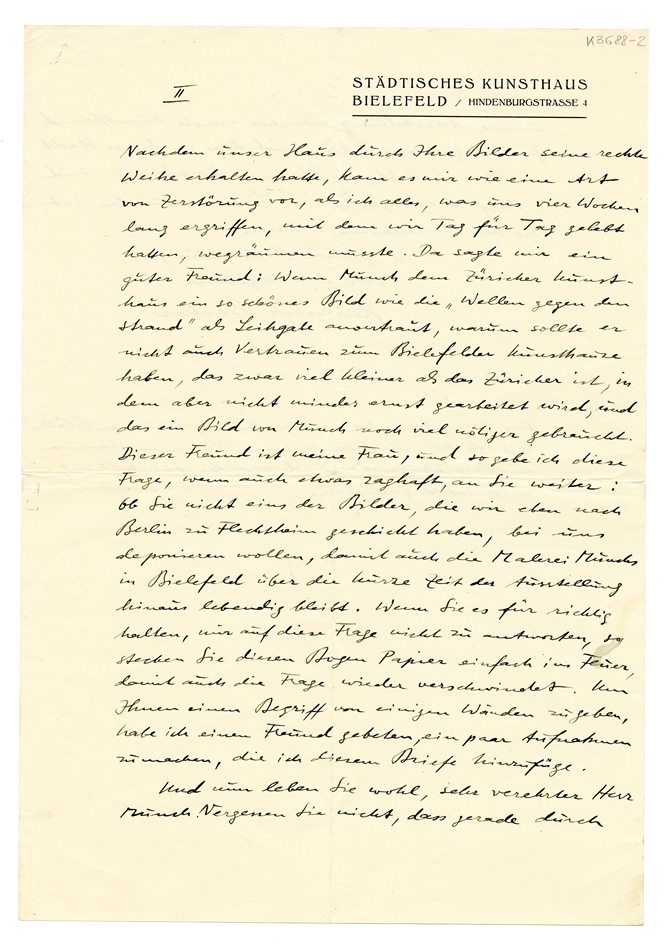 K3688-2
II
STÄDTISCHES KUNSTHAUS
BIELEFELD / HINDENBURGSTRASSE 4
Nachdem unser Haus durch Ihre Bilder seine rechte
Weihe erhalten hatte, kam es mir wie eine Art
von Zerstörung vor, als ich alles, was uns vier Wochen
lang ergriffen, mit dem wir Tag für Tag gelebt
hatten, wegräumen musste. Da sagte mir ein
guter Freund: Wenn Munch dem Züricher Kunst-
haus ein so schönes Bild wie die „Wellen gegen den
Strand" als Leihgabe anvertraut, warum sollte er
nicht auch Vertrauen zum Bielefelder Kunsthause
haben, das zwar viel kleiner als das Züricher ist, in
dem aber nicht minder ernst gearbeitet wird, und
das ein Bild von Munch noch viel nötiger gebraucht.
Dieser Freund ist meine Frau, und so gebe ich diese
Frage, wenn auch etwas zaghaft, an Sie weiter:
ob Sie nicht eins der Bilder, die wir eben nach
Berlin zu Flechtheim geschickt haben, bei uns
deponieren wollen, damit auch die Malerei Munchs
in Bielefeld über die kurze Zeit der Ausstellung
hinaus lebendig bleibt. Wenn Sie es für richtig
halten, mir auf diese Frage nicht zu antworten, so
stecken Sie diesen Bogen Papier einfach ins Feuer,
damit auch die Frage wieder verschwindet. Um
Ihnen einen Begriff von einigen Wänden zu geben,
habe ich einen Freund gebeten, ein paar Aufnahmen
zu machen, die ich diesem Briefe hinzufüge.
Und nun leben Sie wohl, sehr verehrter Herr
Munch. Vergessen Sie nicht, dass gerade durch